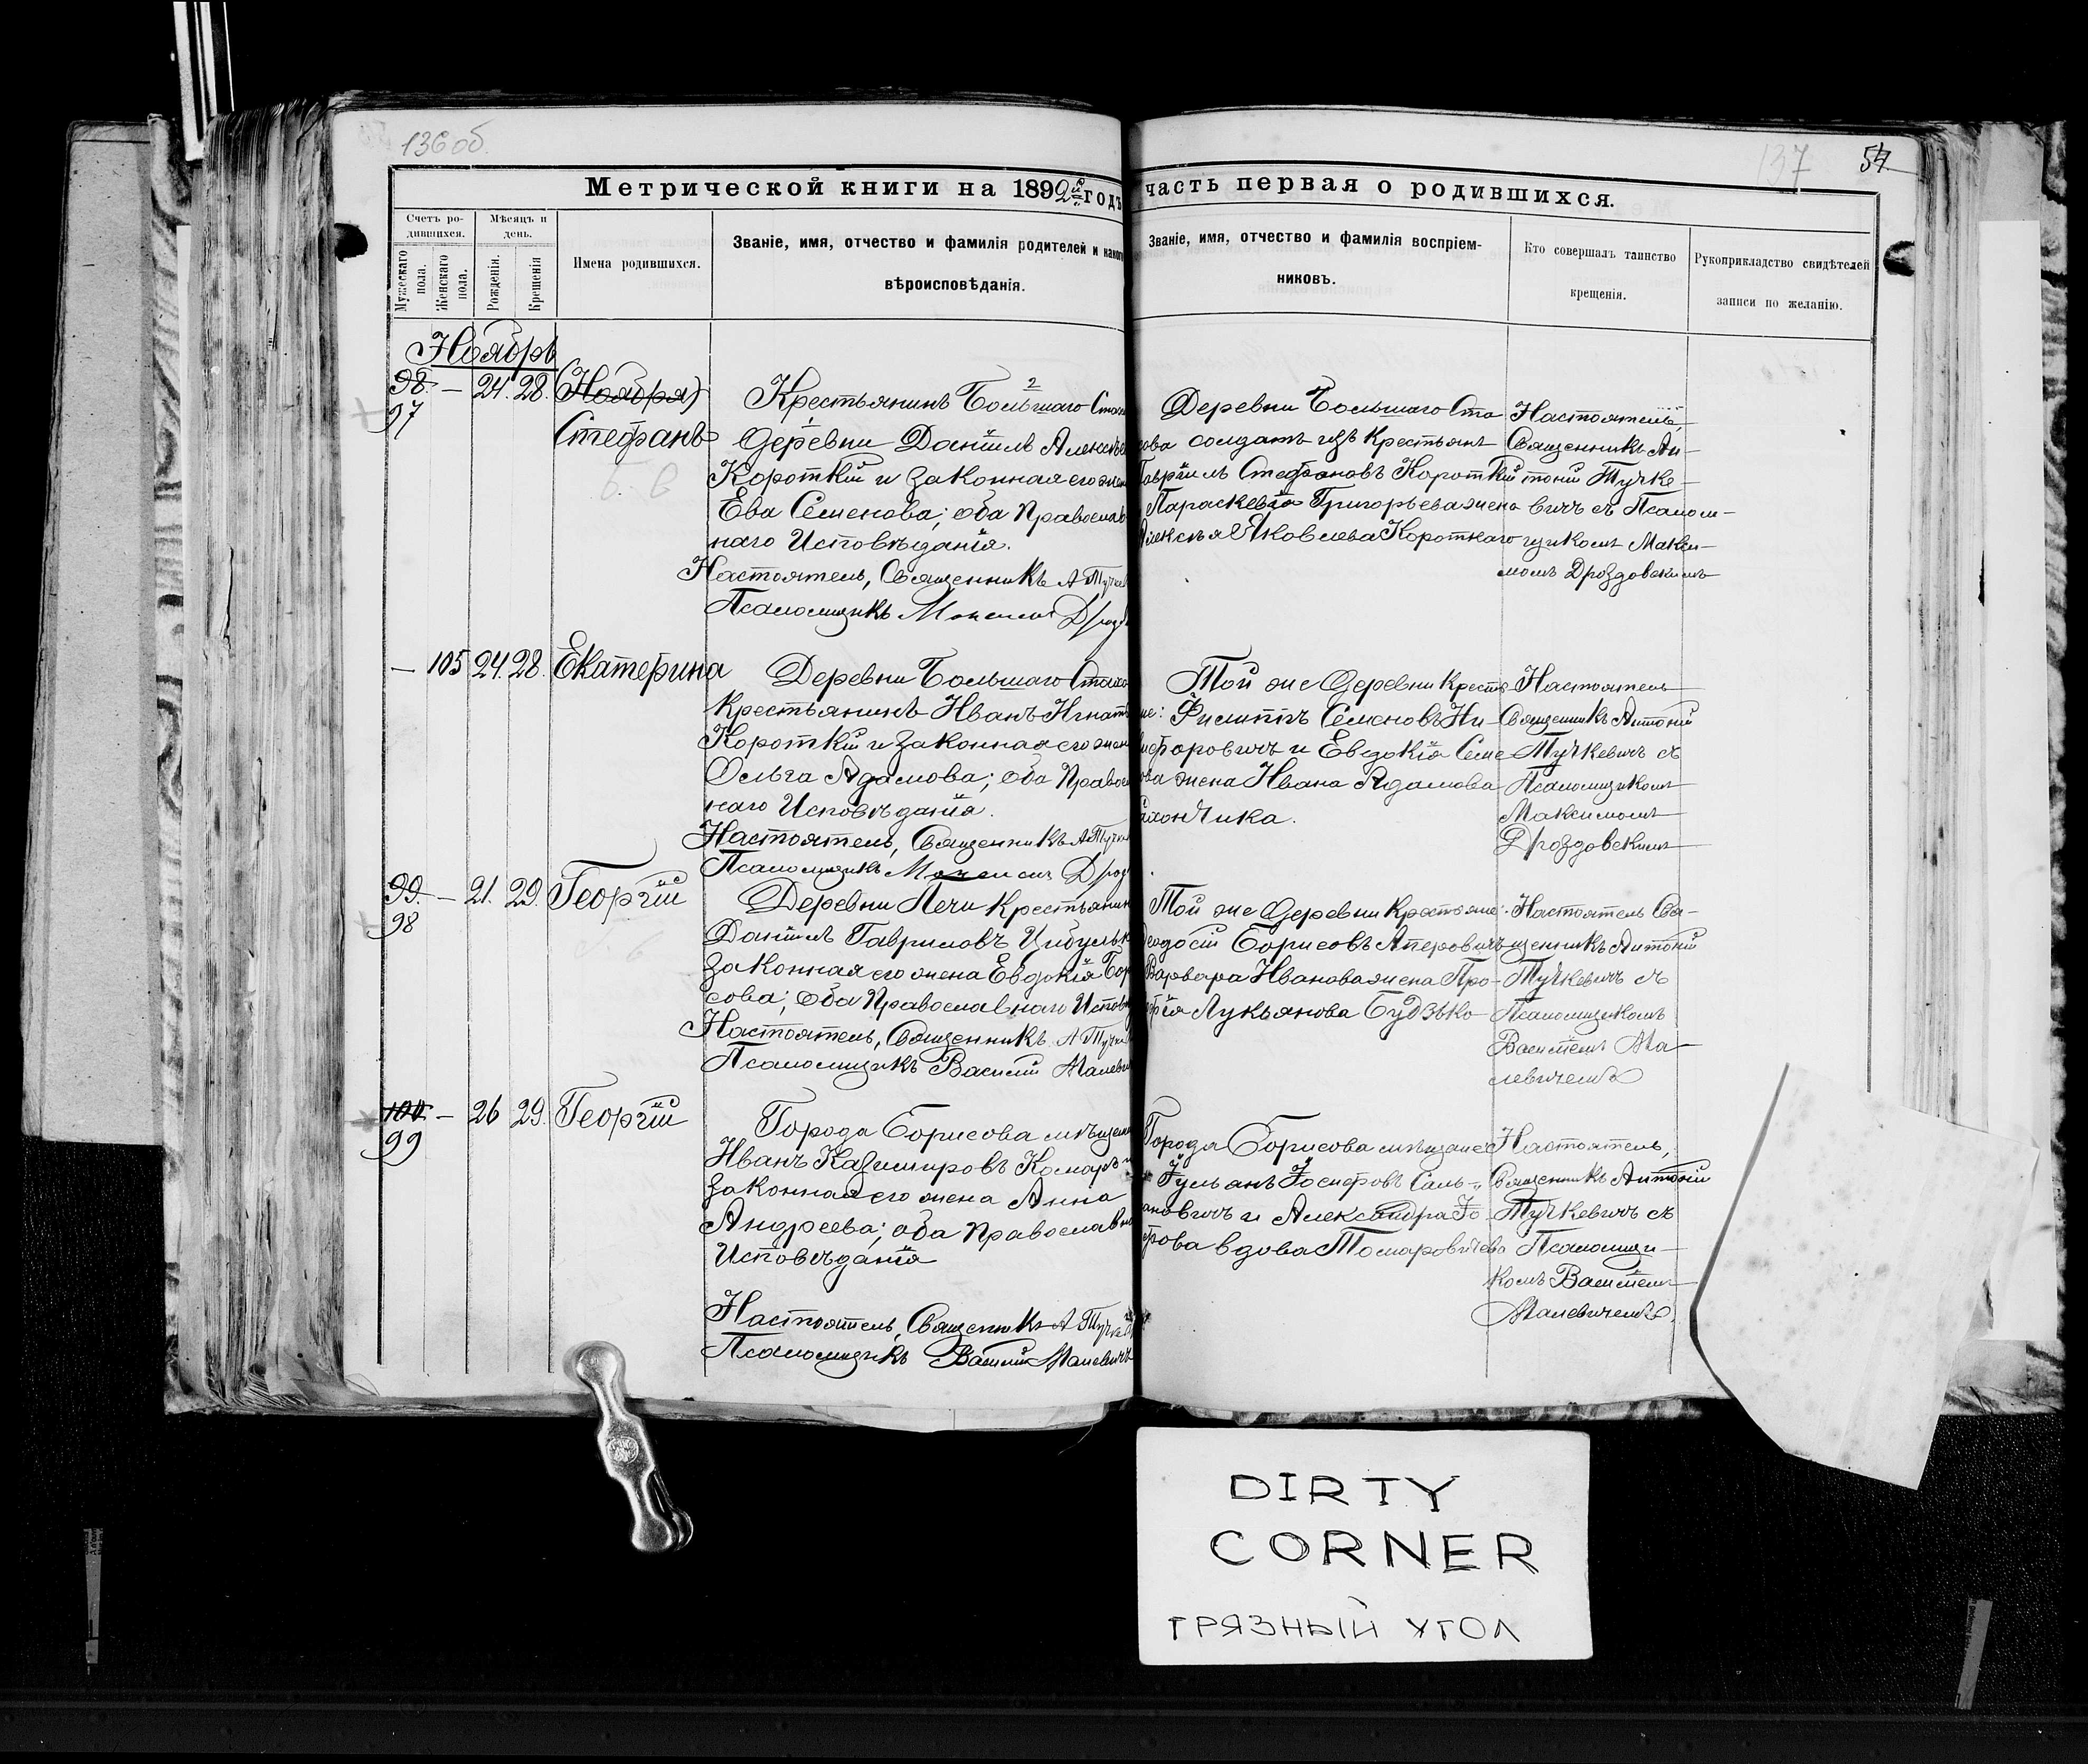 136 об.
137
54
Метрической книги на 1892 годъ
часть первая о родившихся.
Счетъ ро-
дившихся.
Мѣсяцъ и
день.
Мужескаго
пола.
Женскаго
пола.
Рожденія.
Крещенія
Имена родившихся.
Званіе, имя, отчество и фамилія родителей и какого
вѣроисповѣданія.
Званіе, имя, отчество и фамилія воспріем-
никовъ.
Кто совершалъ таинство
крещенія.
Рукоприкладство свидѣтелей
записи по желанію.
Ноябрь
98. — 24. 28. (Ноября)
97
Стефанъ
Крестьянинъ Большаго
деревни Даніилъ
Короткій и законная его
Ева Семенова; оба Православ
наго Исповѣданія.
Настоятель, Священникъ А
Псаломщикъ
Деревни Большаго Ста
солдатъ изъ крестьянъ
Гавріилъ Стефановъ Короткій
Параскевія Григорьева жена
Алексѣя Яковлева Короткаго
Настоятель,
Священникъ Ан-
тоній Тучке-
вичъ съ Псалом-
щикомъ Макси-
момъ Дроздовскимъ
— 105 24. 28. Екатерина
Деревни Большаго
крестьянинъ Иванъ
Короткій и законная его
Ольга Адамова; оба
наго Исповѣданія.
Настоятель, Священникъ А
Псаломщикъ
Той же деревни кресть
не: Филиппъ Семеновъ Ни-
форовичъ и Евдокія Семе
ва жена Ивана Адамова
Настоятель
Священникъ Антоній
Тучкевичъ съ
Псаломщикомъ
Максимомъ
Дроздовскимъ
99. — 21. 29. Георгій
98
Деревни Печи крестьянин
Даніилъ Гавриловъ
законная его жена Евдокія Бор
сова; оба Православнаго Испов
Настоятель, Священникъ А
Псаломщикъ Василій Малеви
Той же деревни крестьяне:
Борисовъ
Варвара Иванова жена Про-
фія Лукьянова Будзько
Настоятель Свя-
щенникъ Антоній
Тучкевичъ съ
Псаломщикомъ
Василіемъ Ма-
левичемъ
100. — 26 29. Георгій
99
Города Борисова мѣщан
Иванъ Казимировъ Комаръ и
законная его жена Анна
Андреева; оба Православ
Исповѣданія
Настоятель, Священникъ А
Псаломщикъ Василій Малевичъ
Города Борисова мѣщане
Іульанъ Іосифовъ Саль-
ановичъ и Александра Іо
фова вдова
Настоятель,
Священникъ Антоній
Тучкевичъ съ
Псаломщи-
комъ Василіемъ
Малевичемъ.
DIRTY
CORNER
ГРЯЗНЫЙ УГОЛ